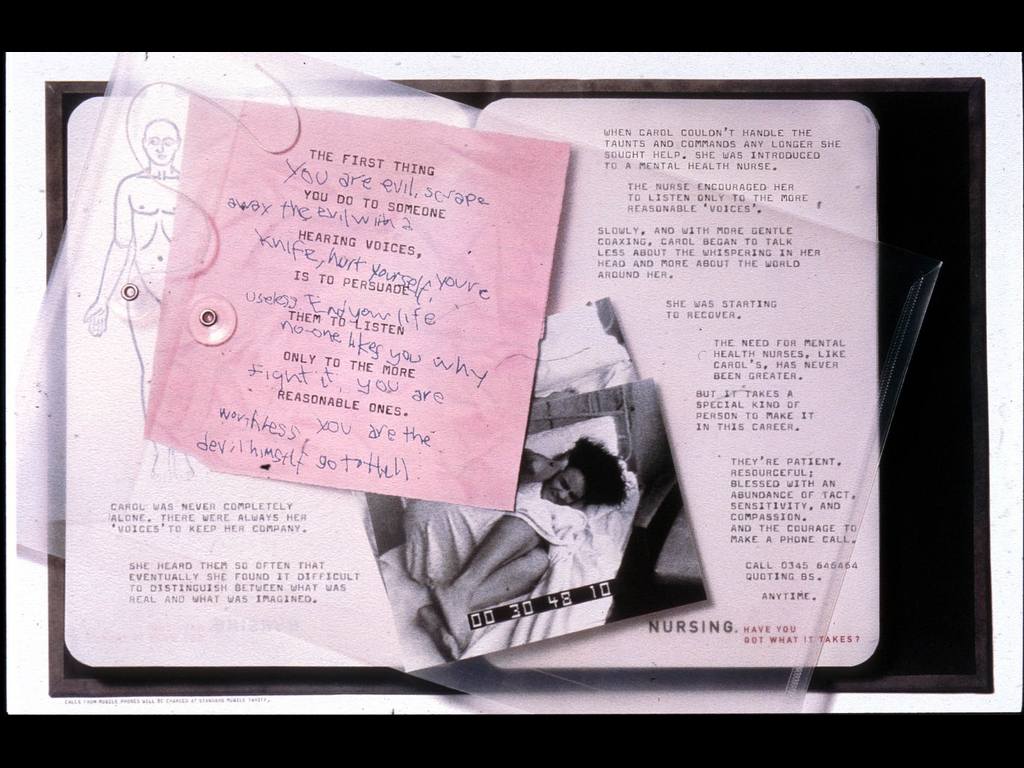 THE FIRST THING
You are evil, scrape
YOU DO TO SOMEONE
away the evil with a
HEARING VOICES,
knife, hurt yourself, you're
IS TO PERSUADE
useless End your life
THEM TO LISTEN
no-one likes you why
ONLY TO THE MORE
Fight it, you are
REASONABLE ONES.
worthless you are the
devil himself go to Hell
CAROL WAS NEVER COMPLETELY
ALONE. THERE WERE ALWAYS HER
'VOICES' TO KEEP HER COMPANY.
SHE HEARD THEM SO OFTEN THAT
EVENTUALLY SHE FOUND IT DIFFICULT
TO DISTINGUISH BETWEEN WHAT WAS
REAL AND WHAT WAS IMAGINED.
WHEN CAROL COULDN'T HANDLE THE
TAUNTS AND COMMANDS ANY LONGER SHE
SOUGHT HELP. SHE WAS INTRODUCED
TO A MENTAL HEALTH NURSE.
THE NURSE ENCOURAGED HER
TO LISTEN ONLY TO THE MORE
REASONABLE 'VOICES'.
SLOWLY, AND WITH MORE GENTLE
COAXING, CAROL BEGAN TO TALK
LESS ABOUT THE WHISPERING IN HER
HEAD AND MORE ABOUT THE WORLD
AROUND HER.
SHE WAS STARTING
TO RECOVER.
THE NEED FOR MENTAL
HEALTH NURSES, LIKE
CAROL'S, HAS NEVER
BEEN GREATER.
BUT IT TAKES A
SPECIAL KIND OF
PERSON TO MAKE IT
IN THIS CAREER.
THEY'RE PATIENT,
RESOURCEFUL;
BLESSED WITH AN
ABUNDANCE OF TACT,
SENSITIVITY, AND
COMPASSION.
AND THE COURAGE TO
MAKE A PHONE CALL.
CALL 0345 646464
QUOTING BS.
ANYTIME.
00 30 48 10
NURSING. HAVE YOU
GOT WHAT IT TAKES?
CALLS FROM MOBILE PHONES WILL BE CHARGED AT STANDARD MOBILE TARIFF.